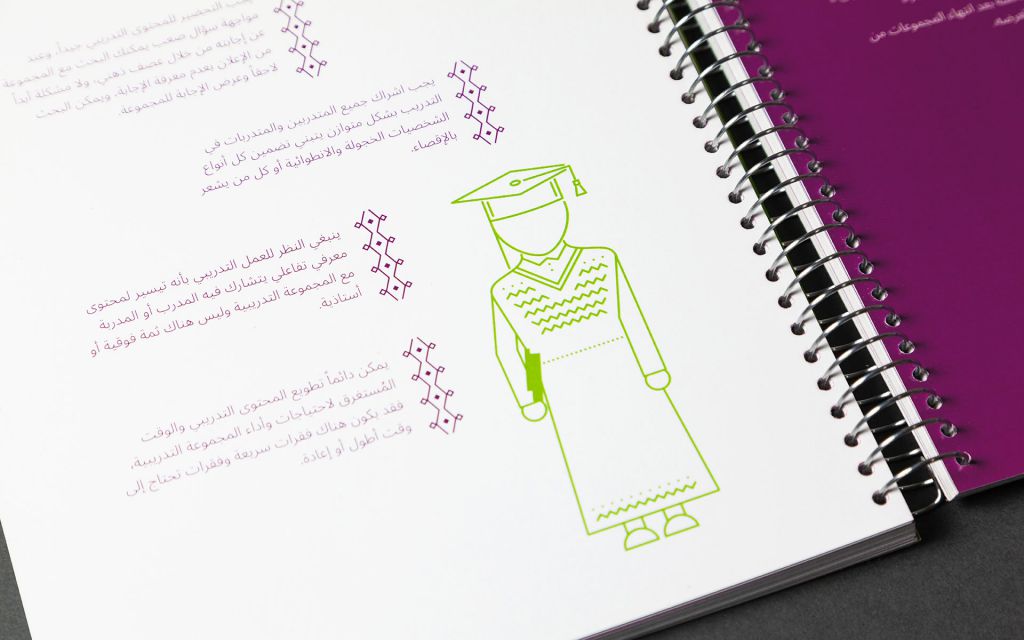 يجب التحضير للمحتوى التدريبي جيداً، وعند
مواجهة سؤال صعب يمكنك البحث مع المجموعة
عن إجابته من خلال عصف ذهني، ولا مشكلة أبداً
من الإعلان بعدم معرفة الإجابة، ويمكن البحث
لاحقاً وعرض الإجابة للمجموعة.
يجب اشراك جميع المتدربين والمتدربات في
التدريب بشكل متوازن يتبنى تضمين كل أنواع
الشخصيات الخجولة والانطوائية أو كل من يشعر
بالإقصاء.
ينبغي النظر للعمل التدريبي بأنه تيسير لمحتوى
معرفي تفاعلي يتشارك فيه المدرب أو المدربة
مع المجموعة التدريبية وليس هناك ثمة فوقية أو
أستاذية.
يمكن دائماً تطويع المحتوى التدريبي والوقت
المُستغرق لاحتياجات وأداء المجموعة التدريبية،
فقد يكون هناك فقرات سريعة وفقرات تحتاج إلى
وقت أطول أو إعادة.
بعد انتهاء المجموعات من